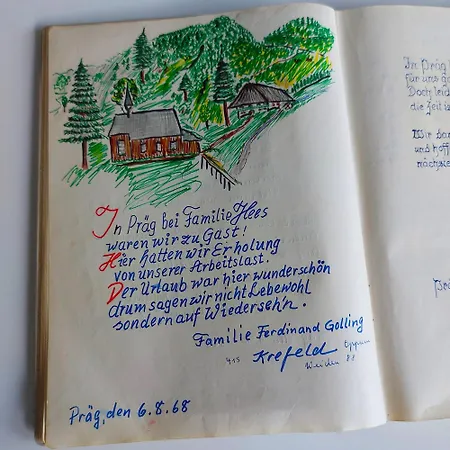 In Präg bei Familie Hees
waren wir zu Gast!
Hier hatten wir Erholung
von unserer Arbeitslast.
Der Urlaub war hier wunderschön
drum sagen wir nicht Lebewohl
sondern auf Wiederseh'n.
Familie Ferdinand Golling
415 Krefeld
Präg, den 6.8.68
In Präg
für uns
Doch
die Zeit
Wir
und
nächste